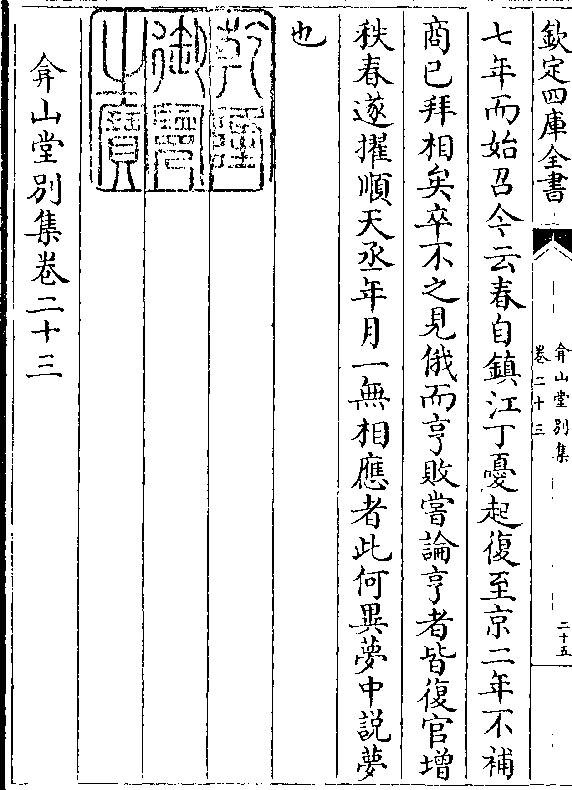 欽定四庫全書
弇山堂別集
卷二十三
二十五
七年而始召今云春自鎮江丁憂起復至京二年不補
商已拜相矣卒不之見俄而亨敗嘗論亨者皆復官增
秩春遂擢順天丞年月一無相應者此何異夢中說夢
也
乾隆
御覽
之寶
弇山堂別集卷二十三